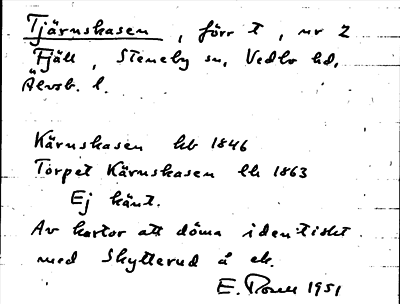 Tjärnskasen, förr t, nr 2
Fjäll, Steneby sn, Vedbo hd,
Älvsb. l.
Kärnskasen hb 1846
Torpet Kärnskasen lh 1863
Ej känt.
Av kartor att döma identiskt
med Skytterud å ek.
E. 1951